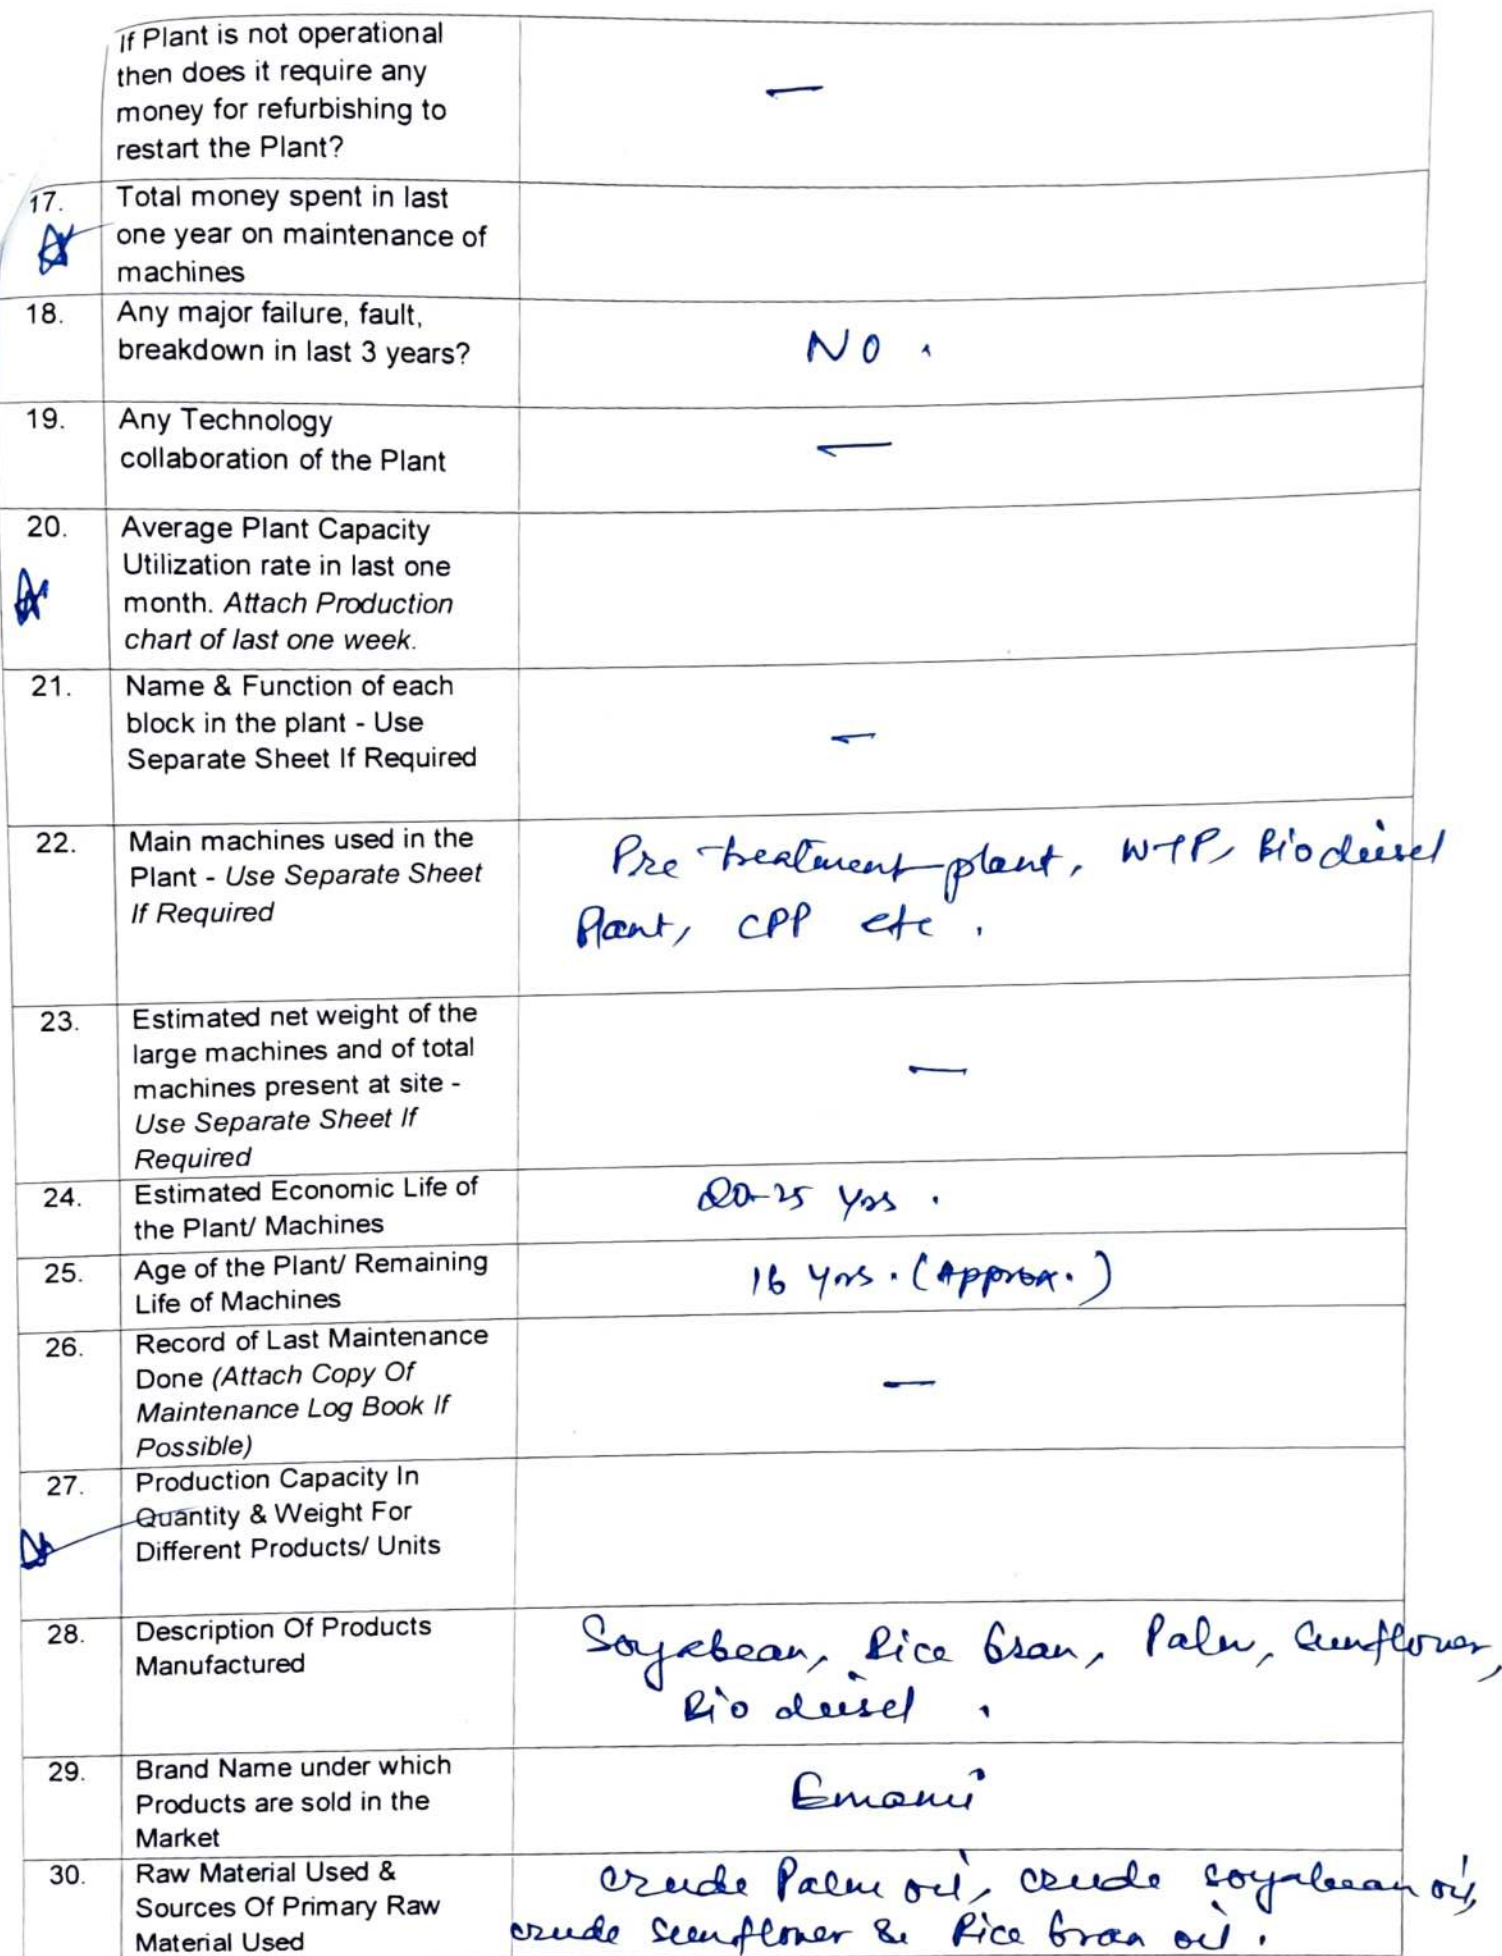 If Plant is not operational
then does it require any
money for refurbishing to
restart the Plant?
—
17. Total money spent in last
one year on maintenance of
machines
18. Any major failure, fault,
breakdown in last 3 years?
NO .
19. Any Technology
collaboration of the Plant
—
20. Average Plant Capacity
Utilization rate in last one
month. Attach Production
chart of last one week.
21. Name & Function of each
block in the plant - Use
Separate Sheet If Required
—
22. Main machines used in the
Plant - Use Separate Sheet
If Required
Pre-treatment plant, WTP, Biodeisel
Plant, CPP etc .
23. Estimated net weight of the
large machines and of total
machines present at site -
Use Separate Sheet If
Required
—
24. Estimated Economic Life of
the Plant/ Machines
20-25 yrs .
25. Age of the Plant/ Remaining
Life of Machines
16 yrs. (Approx.)
26. Record of Last Maintenance
Done (Attach Copy Of
Maintenance Log Book If
Possible)
—
27. Production Capacity In
Quantity & Weight For
Different Products/ Units
28. Description Of Products
Manufactured
Soyabean, Rice bran, Palm, Sunflower,
Bio deisel .
29. Brand Name under which
Products are sold in the
Market
Emami
30. Raw Material Used &
Sources Of Primary Raw
Material Used
crude Palm oil, crude soyabean oil,
crude sunflower & Rice bran oil .